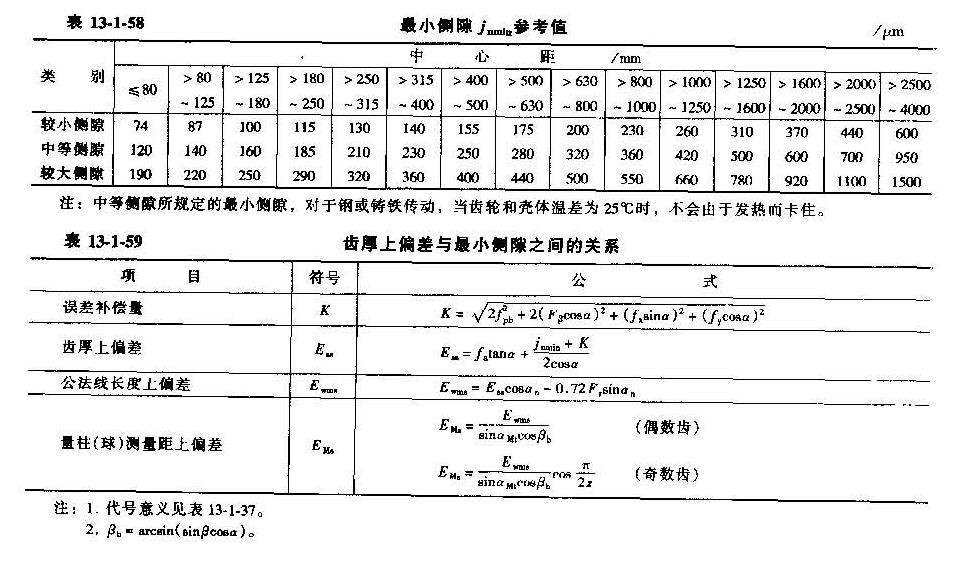 表 13-1-58 最小侧隙 j_nmin参考值 /μm
类 别 中 心 距 /mm
≤80 >80 ~125 >125 ~180 >180 ~250 >250 ~315 >315 ~400 >400 ~500 >500 ~630 >630 ~800 >800 ~1000 >1000 ~1250 >1250 ~1600 >1600 ~2000 >2000 ~2500 >2500 ~4000
较小侧隙 74 87 100 115 130 140 155 175 200 230 260 310 370 440 600
中等侧隙 120 140 160 185 210 230 250 280 320 360 420 500 600 700 950
较大侧隙 190 220 250 290 320 360 400 440 500 550 660 780 920 1100 1500
注：中等侧隙所规定的最小侧隙，对于钢或铸铁传动，当齿轮和壳体温差为25℃时，不会由于发热而卡住。
表 13-1-59 齿厚上偏差与最小侧隙之间的关系
项 目 符号 公 式
误差补偿量 K K = √(2f_pb² + 2(F_βcosα)² + (f_xsinα)² + (f_ycosα)²)
齿厚上偏差 E_ss E_ss = f_atanα + (j_nmin + K)/(2cosα)
公法线长度上偏差 E_wms E_wms = E_sscosα_n − 0.72F_rsinα_n
量柱(球)测量距上偏差 E_Ms E_Ms = E_wms/(sinα_Mtcosβ_b) (偶数齿)
E_Ms = E_wms/(sinα_Mtcosβ_b) cos π/2z (奇数齿)
注：1. 代号意义见表 13-1-37。
2. β_b = arcsin(sinβcosα)。